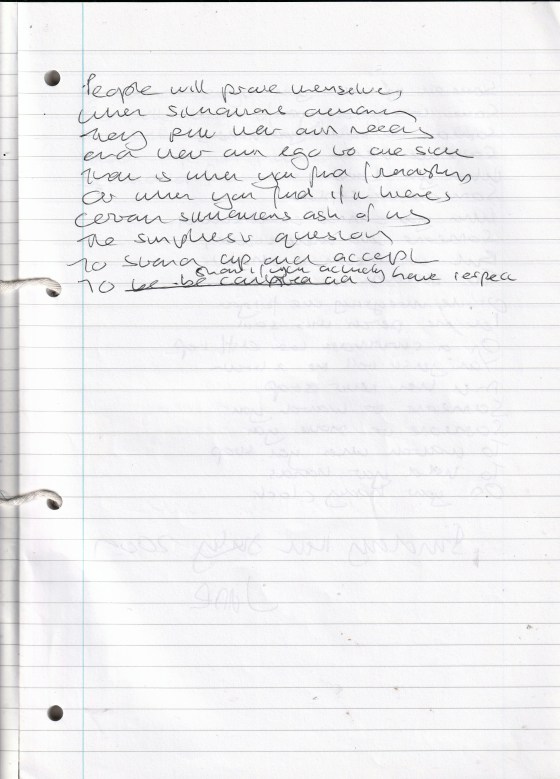 People will prove themselves
when situations demand
they put their own needs
and their own ego to one side
that is when you find friendships
Or when you find if it means
certain situations ask of us
the simplest question
to stand up and accept
show if you actually
To be be have respect